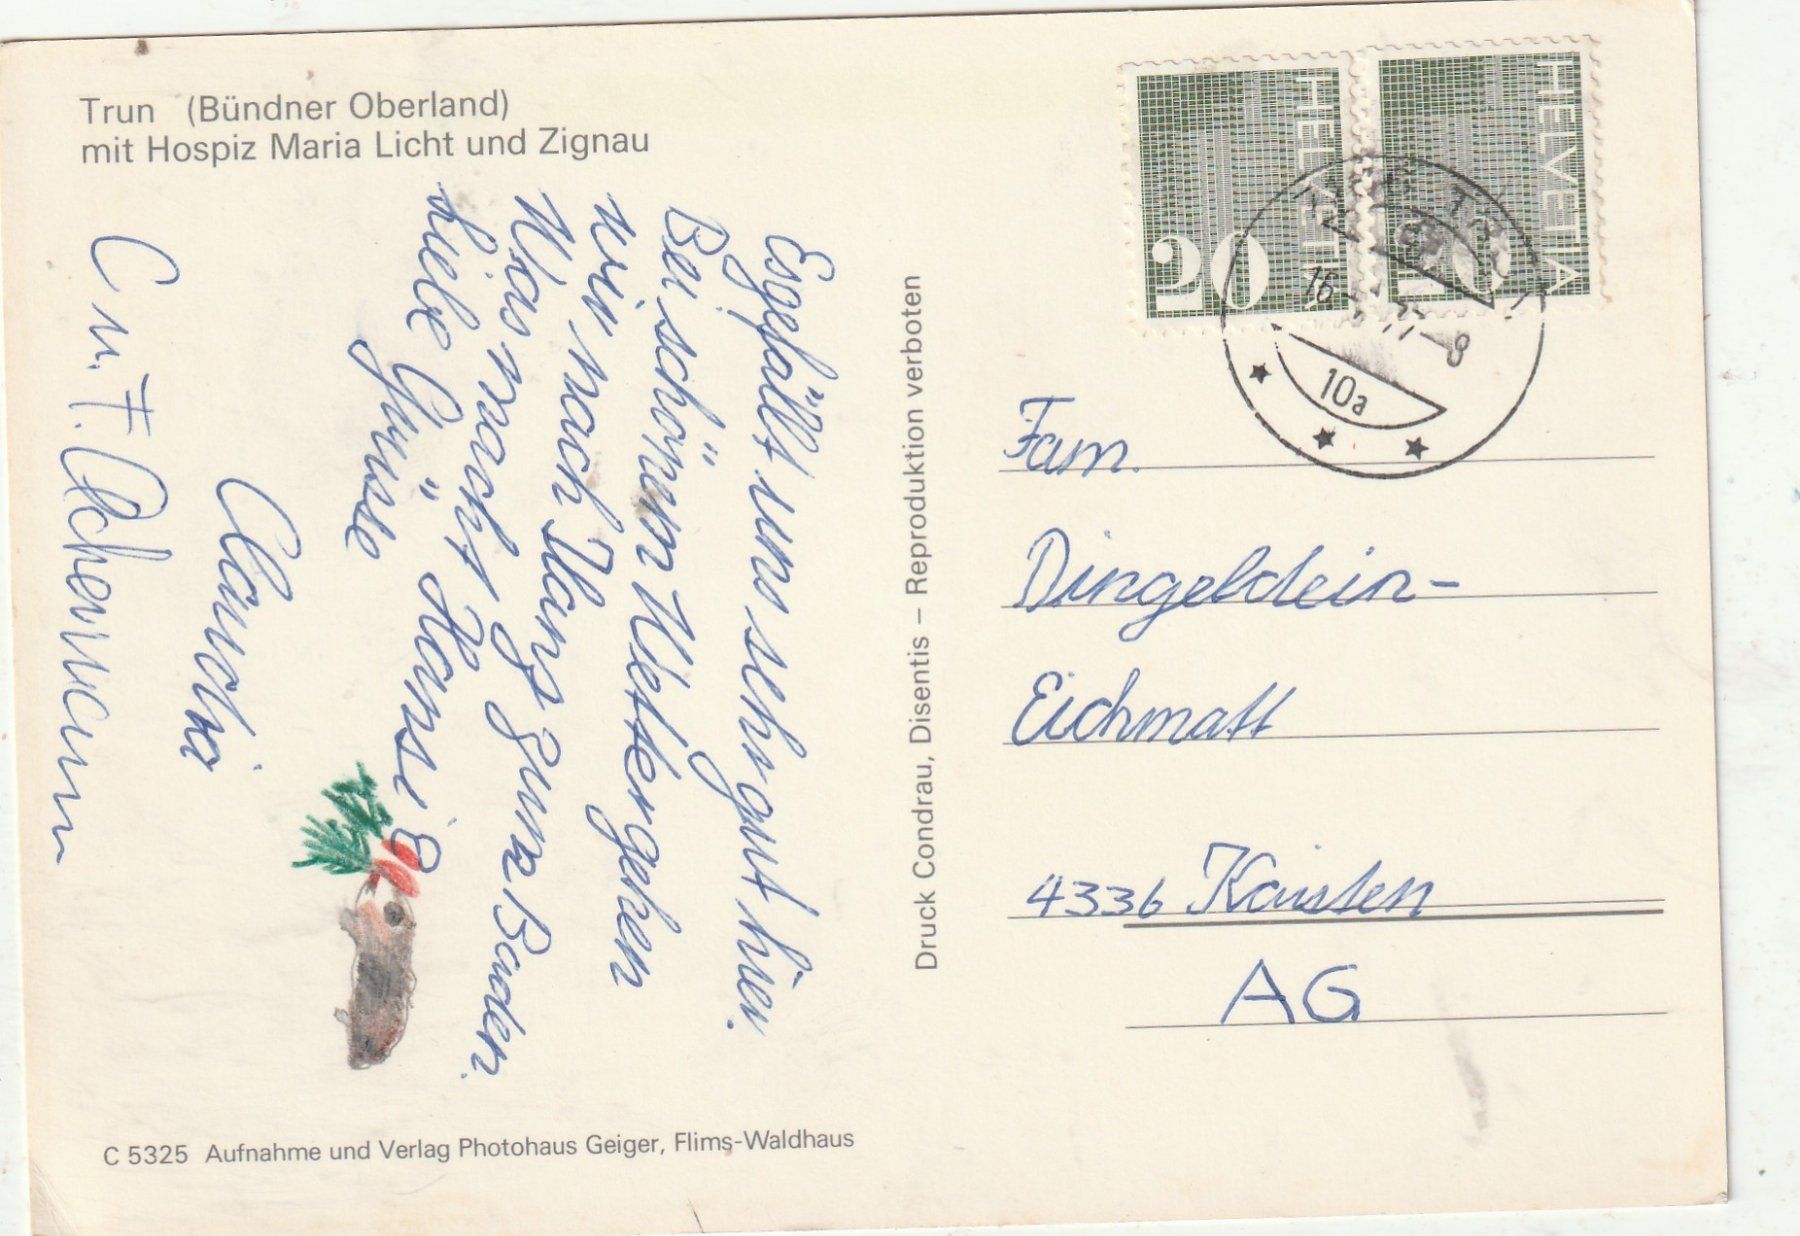 Trun (Bündner Oberland)
mit Hospiz Maria Licht und Zignau
Es gefällt uns sehr gut hier.
Bei schönem Wetter gehen
wir nach Ilanz zum Baden.
Was macht Hansi?
Liebe Grüsse
Claudia
C u. F. Achermann
Druck Condrau, Disentis – Reproduktion verboten
C 5325 Aufnahme und Verlag Photohaus Geiger, Flims-Waldhaus
HELVETIA
20
HELVETIA
20
16
77-8
10a
Fam.
Dingeldein-
Eichmatt
4336 Kaisten
AG